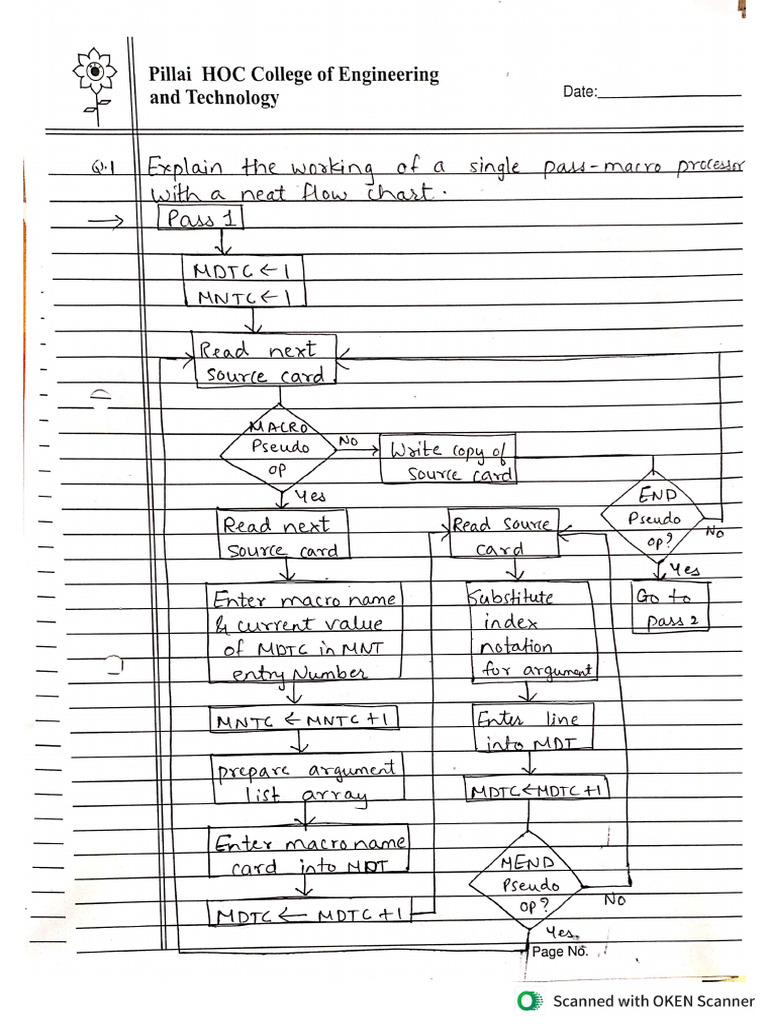 Pillai HOC College of Engineering
and Technology
Date:
Q.1 Explain the working of a single pass-macro processor
with a neat flow chart.
→ Pass 1
MDTC ← 1
MNTC ← 1
Read next
source card
MACRO
Pseudo
op
No
Write copy of
source card
Yes
END
Pseudo
op?
No
Yes
Go to
pass 2
Read next
source card
Enter macro name
& current value
of MDTC in MNT
entry Number
MNTC ← MNTC +1
prepare argument
list array
Enter macro name
card into MDT
MDTC ← MDTC +1
Read source
card
Substitute
index
notation
for argument
Enter line
into MDT
MDTC ← MDTC +1
MEND
Pseudo
op?
No
Yes.
Page No.
Scanned with OKEN Scanner